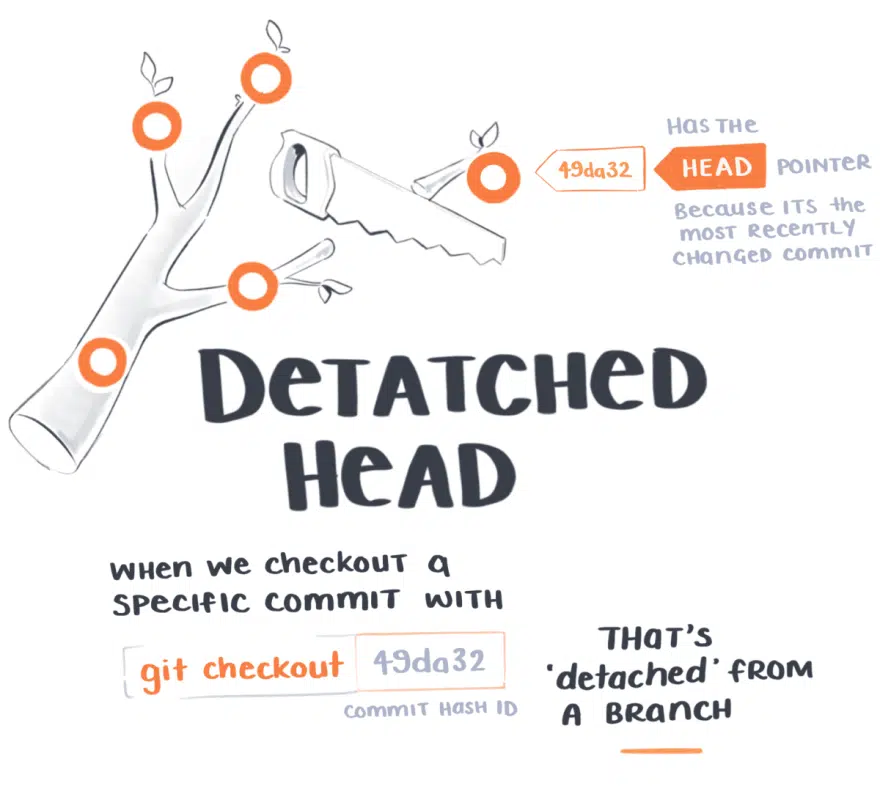 Has the
49da32
HEAD
POINTER
Because ITS the
most recently
changed commit
DETATCHED
HEAD
when we checkout a
specific commit with
git checkout 49da32
commit hash ID
That's
'detached' from
a branch